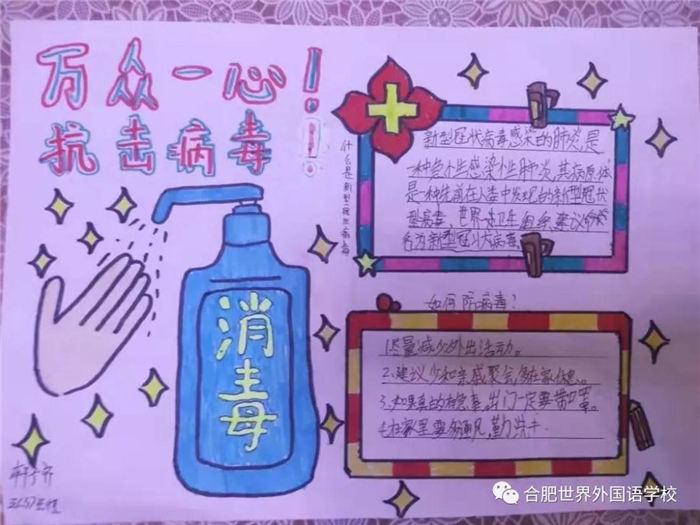 万众一心！
抗击病毒！
什么是新型冠状病毒
新型冠状病毒感染的肺炎是
一种急性感染性肺炎，其病原体
是一种先前在人类中未发现的新型冠状
型病毒，世界卫生组织建议命
名为新型冠状病毒
消毒
如何防病毒？
1.尽量减少外出活动。
2.建议少和亲戚聚会，多在家休息。
3.如果真的有急事，出门一定要带口罩。
4.在家里要多通风，勤洗手
合肥世界外国语学校